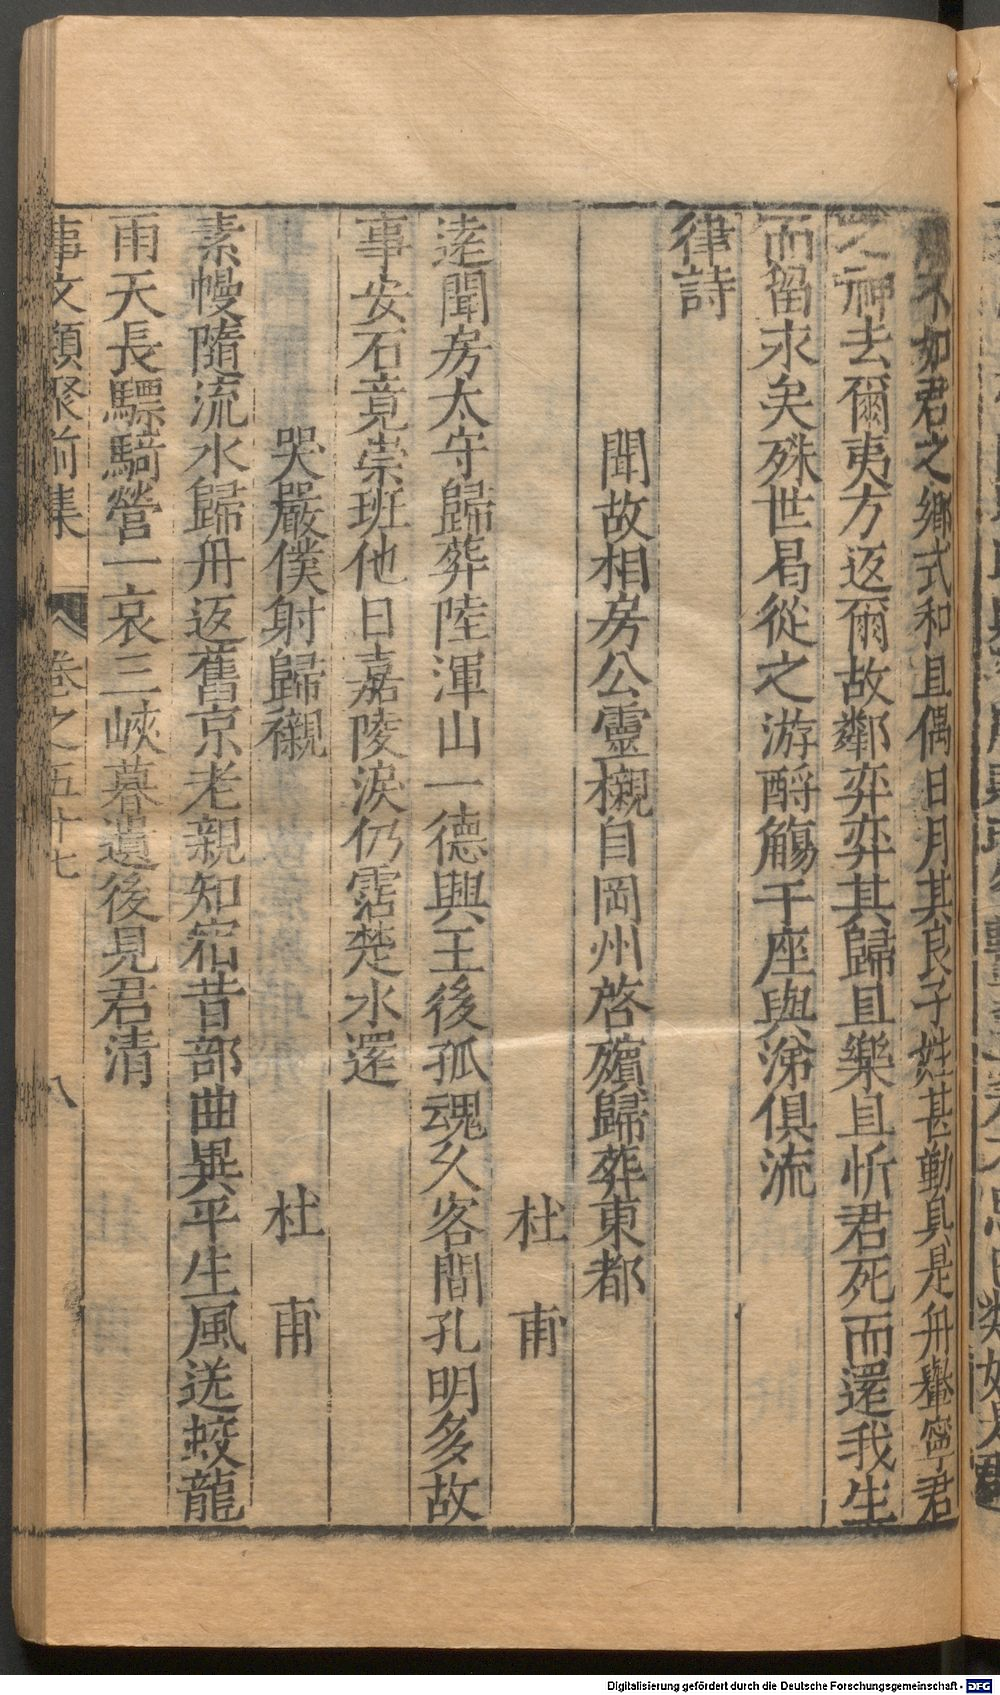 不如君之鄉式和且偶日月其良子姓甚勤具是舟轝寧君
之神去爾夷方返爾故鄰弈弈其歸且樂且忻君死而還我生
而留求矣殊世曷從之游酹觴千座與涕俱流
律詩
聞故相房公靈櫬自閬州啓殯歸葬東都
杜甫
逺聞房太守歸葬陸渾山一德興王後孤魂久客間孔明多故
事安石竟崇班他日嘉陵淚仍霑楚水還
哭嚴僕射歸櫬　杜甫
素幔隨流水歸舟返舊京老親知宿昔部曲異平生風送蛟龍
雨天長驃騎營一哀三峽暮遺後見君清
事文類聚前集　卷之五十七　八
Digitalisierung gefördert durch die Deutsche Forschungsgemeinschaft - DFG